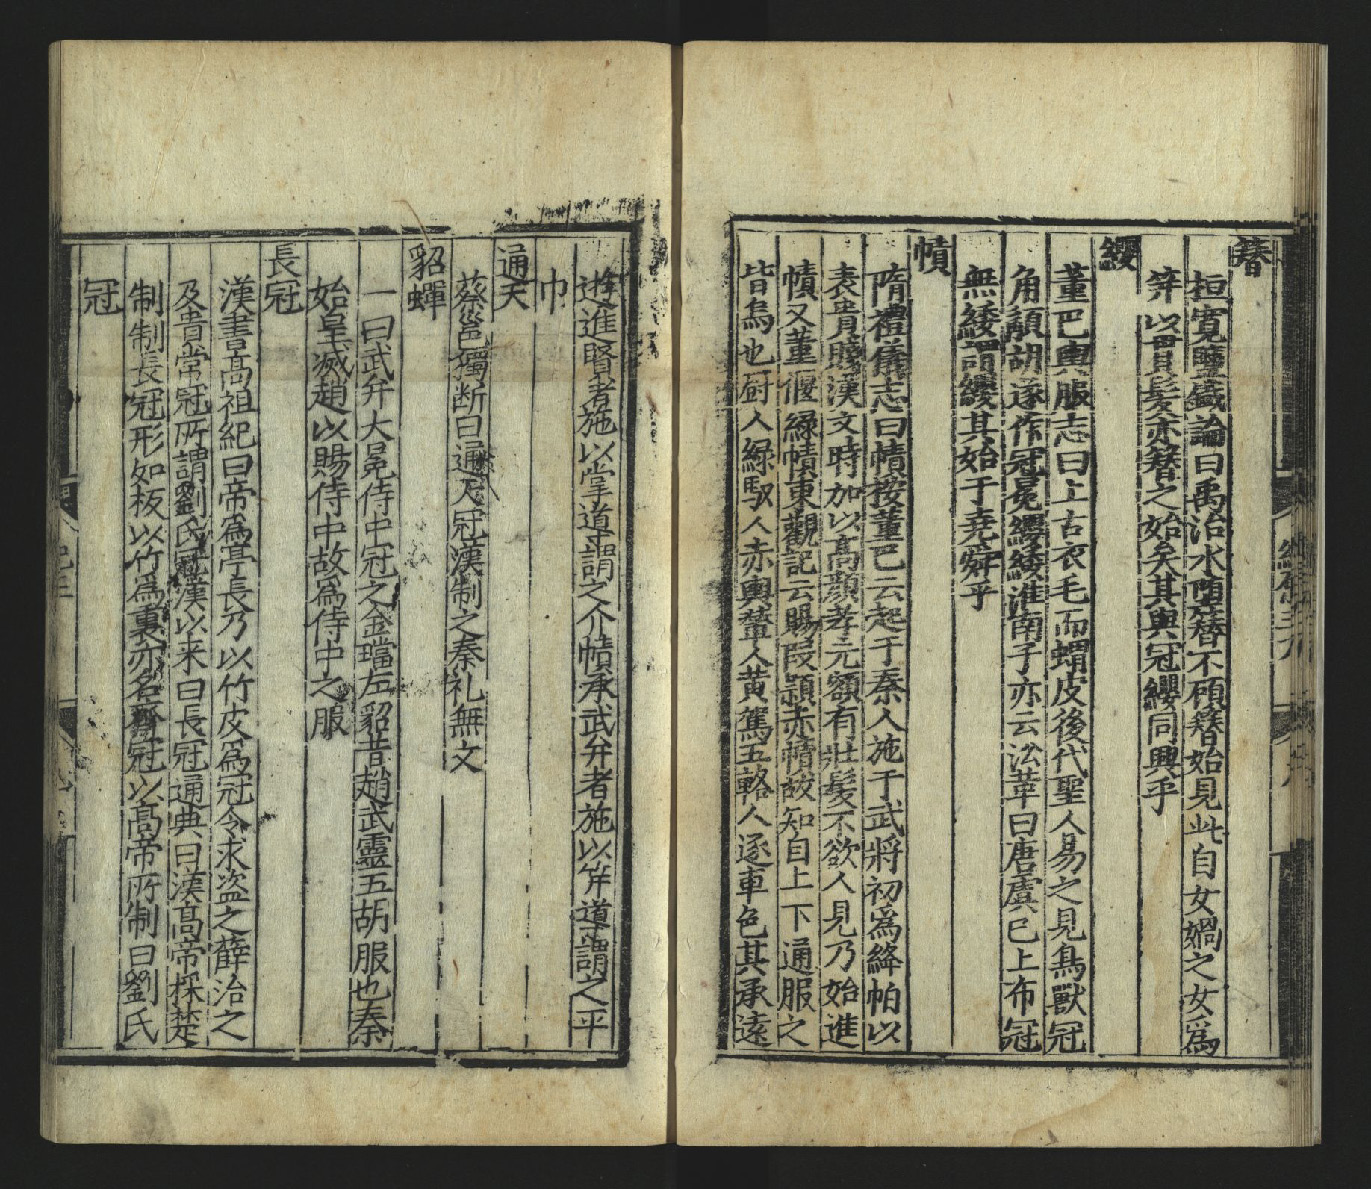 簪
桓寛鹽鐵論曰禹治水堕簪不頋簪始見此自女媧之女爲
笄以貫髪亦簪之始矣其與冠纓同興乎
纓
董巴輿服志曰上古衣毛而蝟皮後代聖人易之見鳥獸冠
角䫇胡遂作冠冕纓緌淮南子亦云㳒葦曰唐虞已上布冠
無緌謂纓其始于尭舜乎
幘
隋禮儀志曰幘按董巴云起于秦人施于武將初爲絳帕以
表貴賤漢文時加以髙顔孝元額有壯髪不欲人見乃始進
幘又董偃緑幘東觀記云賜叚頴赤幘故知自上下通服之
皆烏也厨人緑馭人赤輿輦人黄駕五輅人逐車色其承逺
逰進賢者施以掌導謂之介幘承武弁者施以笄導謂之平
巾
通天
蔡邕獨断曰通天冠漢制之秦礼無文
貂蟬
一曰武弁大冕侍中冠之金璫左貂昔趙武靈王胡服也秦
始皇滅趙以賜侍中故爲侍中之服
長冠
漢書髙祖紀曰帝爲亭長乃以竹皮爲冠令求盗之薛治之
及貴常冠所謂劉氏冠漢以来曰長冠通典曰漢髙帝採楚
制制長冠形如板以竹爲裏亦名齋冠以髙帝所制曰劉氏
冠